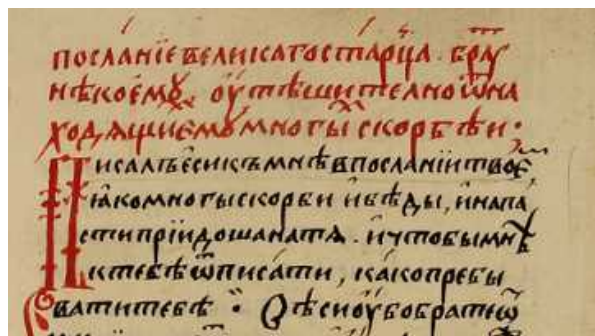 посланїе великаго старца. брау
нѣкоемꙋ оутѣшително ѿ на
ходѧщиемꙋ многы скорбѣи·
Писалъ еси къ мнѣ в посланїи твое
ꙗко многы скорби и бѣды, и напа
сти прїидоша на тѧ. и чтобы мнѣ
к тебѣ ѿписати, како пребы
вати тебѣ ⁘ Рѣси оубо брате ѿ